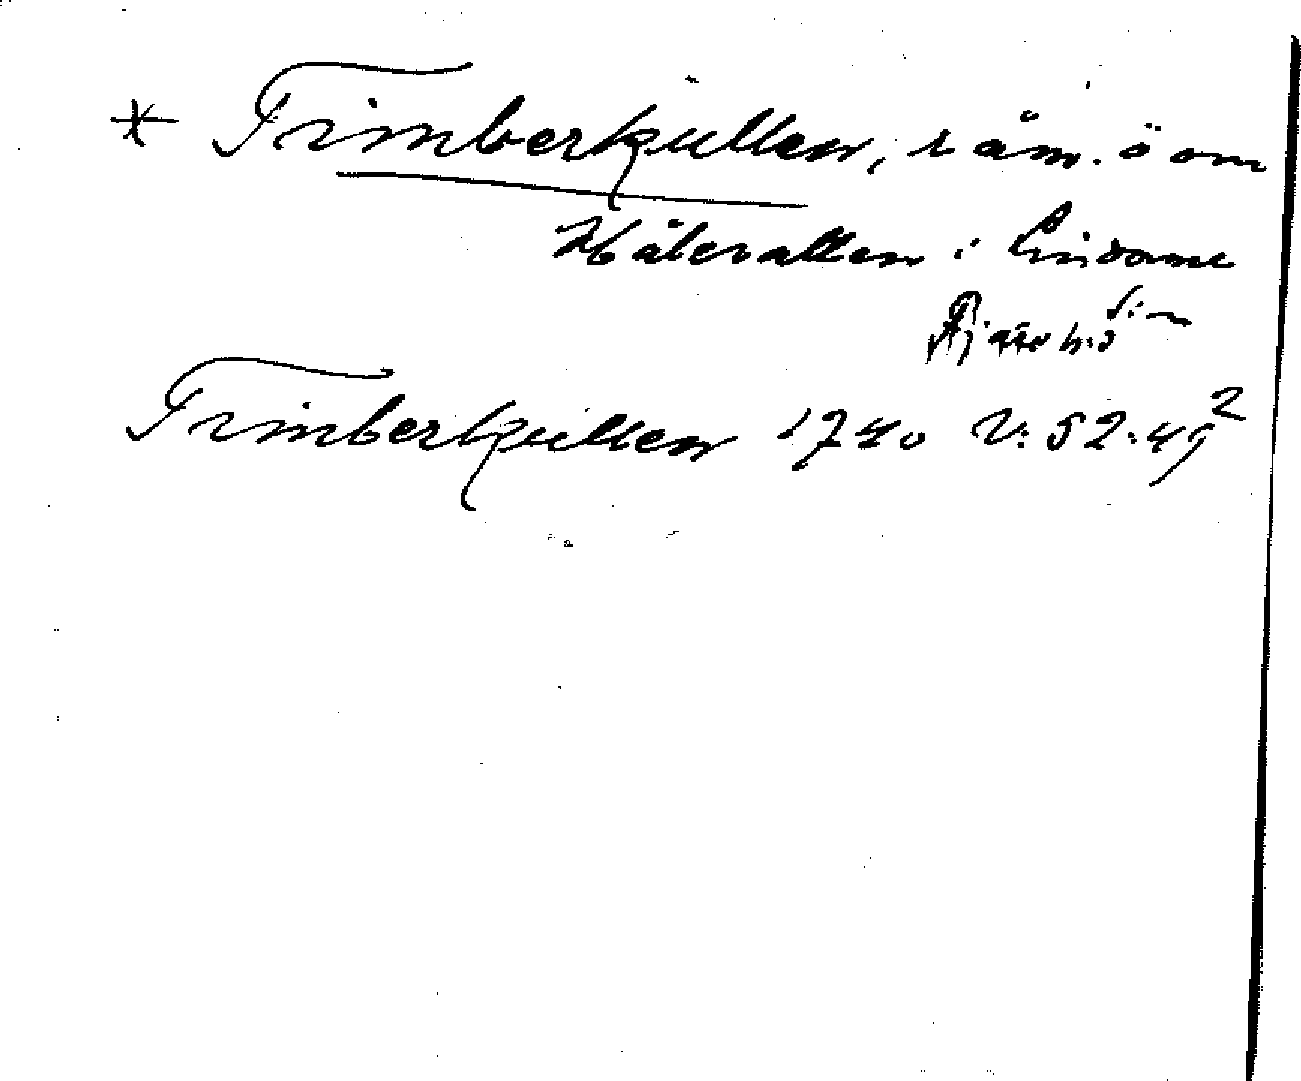 * Trimberkullen, råm. ö om
Hålevallen i Lindome
Fjäre h:d
Trimberkullen 1740 V: 52:49²